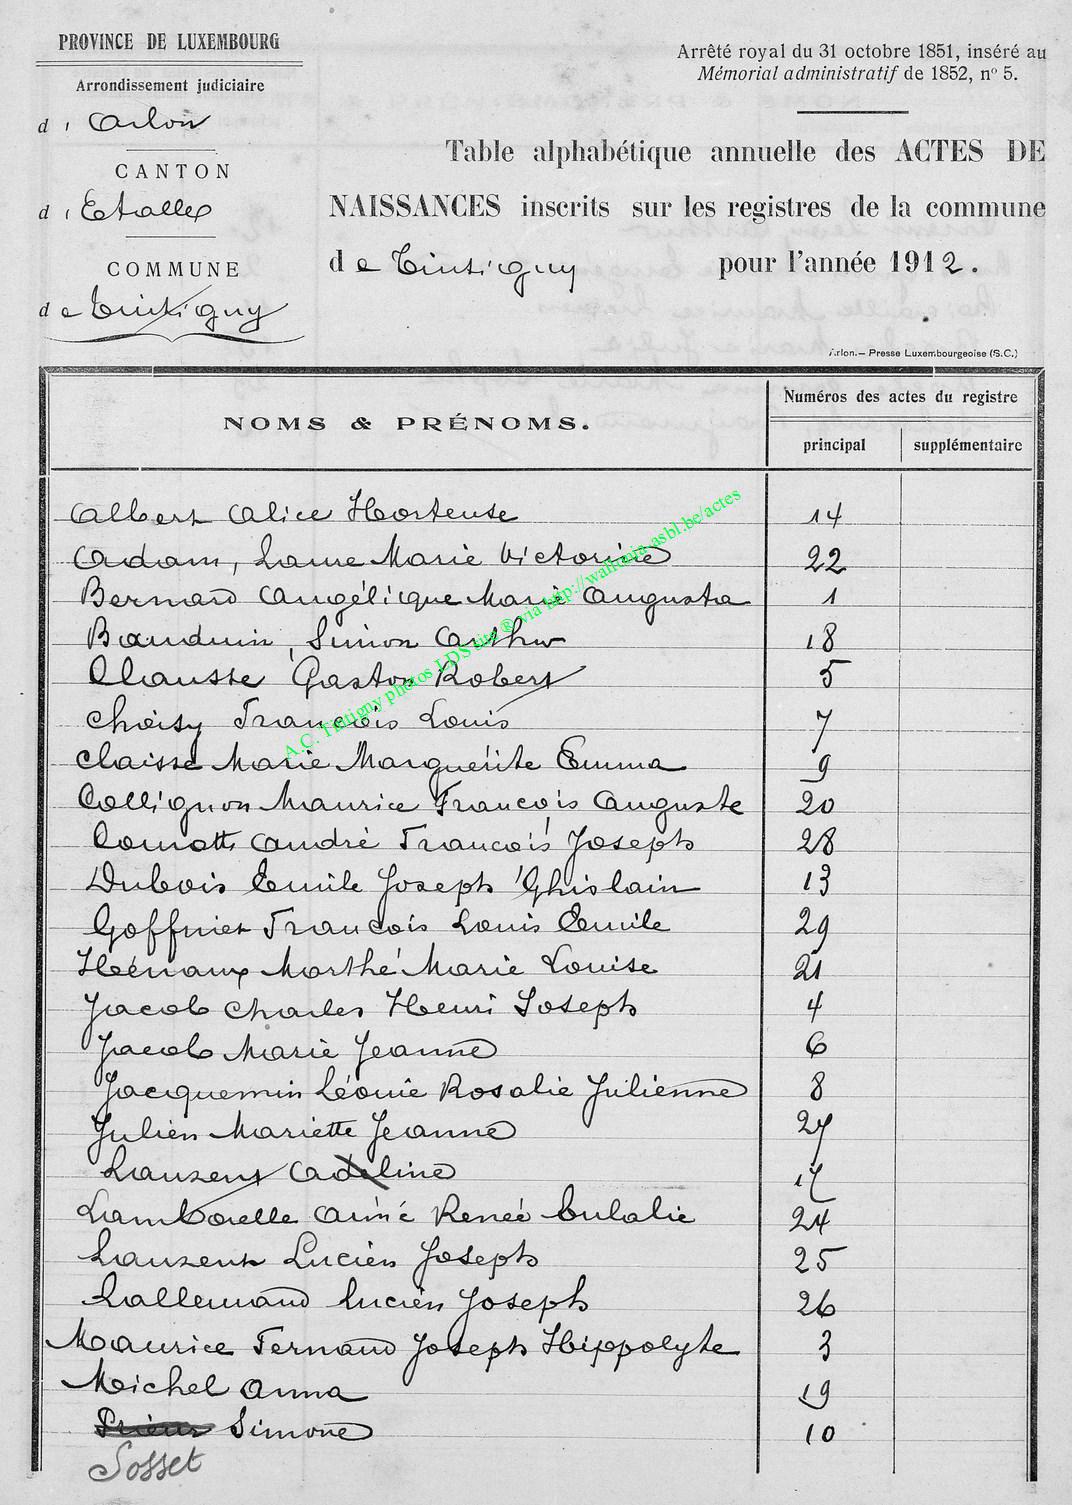 PROVINCE DE LUXEMBOURG
Arrondissement judiciaire
d' Arlon
CANTON
d' Etalle
COMMUNE
de Tintigny
Arrêté royal du 31 octobre 1851, inséré au
Mémorial administratif de 1852, n° 5.
Table alphabétique annuelle des ACTES DE
NAISSANCES inscrits sur les registres de la commune
de Tintigny pour l'année 1912.
Arlon.— Presse Luxembourgeoise (S.C.)
NOMS & PRÉNOMS.
Numéros des actes du registre
principal supplémentaire
Albert Alice Hortense 14
Adam, Laure Marie Victorine 22
Bernard Angélique Marie Augusta 1
Bauduin, Simon Arthur 18
Chausse Gaston Robert 5
Choisy François Louis 7
Claisse Marie Marguérite Emma 9
Collignon Maurice François Auguste 20
Cornette André François Joseph 28
Dubois Emile Joseph Ghislain 13
Goffinet François Louis Emile 29
Hénaux Marthé Marie Louise 21
Jacob Charles Henri Joseph 4
Jacob Marie Jeanne 6
Jacquemin Léonie Rosalie Julienne 8
Julien Mariette Jeanne 27
Lauzent Adeline 17
Lamborelle Aimé Renée Eulalie 24
Lauzent Lucien Joseph 25
Lallemand Lucien Joseph 26
Maurice Fernand Joseph Hippolyte 3
Michel Anna 19
Prieur Simone 10
Sosset
A.C. Tintigny photos LDS site ® via http://wallonia-asbl.be/actes